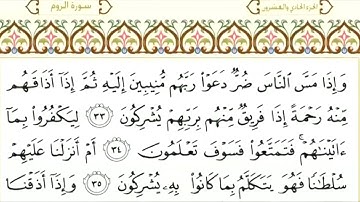 سورة الروم
الجزء الحادي والعشرون
وَإِذَا مَسَّ ٱلنَّاسَ ضُرٌّ دَعَوْا۟ رَبَّهُم مُّنِيبِينَ إِلَيْهِ ثُمَّ إِذَآ أَذَاقَهُم
مِّنْهُ رَحْمَةً إِذَا فَرِيقٌ مِّنْهُم بِرَبِّهِمْ يُشْرِكُونَ ٣٣ لِيَكْفُرُوا۟ بِمَآ
ءَاتَيْنَٰهُمْ ۚ فَتَمَتَّعُوا۟ فَسَوْفَ تَعْلَمُونَ ٣٤ أَمْ أَنزَلْنَا عَلَيْهِمْ
سُلْطَٰنًا فَهُوَ يَتَكَلَّمُ بِمَا كَانُوا۟ بِهِۦ يُشْرِكُونَ ٣٥ وَإِذَآ أَذَقْنَا